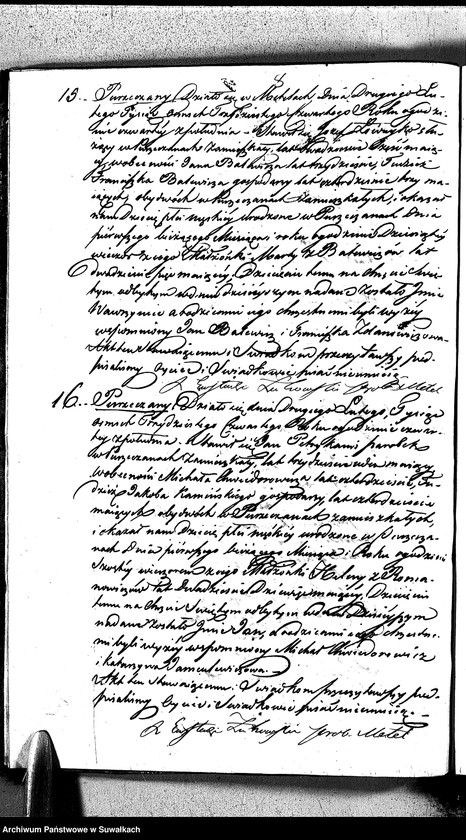 15. Puszczany, Działo się w Metelach, Dnia Drugiego Lu-
tego Tysiąc osmset Trzydziestego czwartego Roku o godzi-
nie czwartey z południa. Stawił się Jozef
w Puszczanach zamieszkały, lat
cy, w obecności Jana Balewicza lat trzydzieści, Tudzież
Franciszka Balewicza gospodarzy lat czterdzieście trzy ma-
iących, obydwoch w Puszczanach zamieszkałych, i okazał
nam Dziecię płci męskiey urodzone w Puszczanach dnia
pierwszego bieżącego Miesiąca i roku o godzinie Dziesiątey
wieczor z iego Małżonki Marty z Balewiczow lat
dwadzieścia pięć maiącey. Dziecięciu temu na Chrzcie Świę-
tym odbytym w dniu dzisieyszym nadane zostało Imie
Wawrzyniec a Rodzicami iego chrzestnemi byli wyżey
wspomniony Jan Balewicz i Franciszka
Akt ten stawaiącemu i Świadkom przeczytawszy pod-
pisaliśmy Oyciec i Świadkowie pisać nieumieią
X Eustachi Żukowski Prob. Metel
16. Puszczany, Działo się dnia Drugiego Lutego, Tysiąc
osmset Trzydziestego czwartego Roku o godzinie czwar-
tey z południa. Stawił się Jan parobek
w Puszczanach zamieszkały, lat trzydzieści ieden maiący,
w obecności Michała Chwiedorowicza lat czterdzieście, Tu-
dzież Jakoba Kamińskiego gospodarzy, lat czterdzieście
maiących obydwoch w Puszczanach zamieszkałych,
i okazał nam Dziecię płci męskiey urodzone w Puszcza-
nach dnia pierwszego bieżącego Miesiąca i Roku o godzinie
szostey wieczorem z iego Małżonki Heleny z Roma-
nowiczow lat Dwadzieścia Dziewięć maiącey, Dziecięciu
temu na Chrzcie Świętym odbytym w dniu Dzisieyszym
nadane zostało Imie Jan, a Rodzicami iego chrzestne-
mi byli wyżey wspomniony Michał Chwiedorowicz
i Katarzyna
Akt ten stawaiącemu i Świadkom przeczytawszy pod-
pisaliśmy Oyciec i Świadkowie pisać nieumieią.
X Eustachi Żukowski Prob. Metel
Archiwum Państwowe w Suwałkach